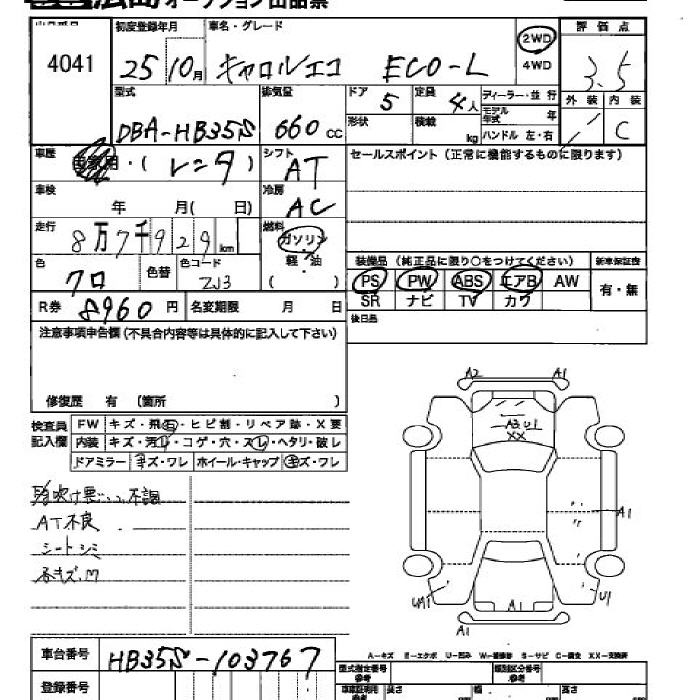 オークション出品票
4041
初度登録年月
25/10月
車名・グレード
キャロルエコ ECO-L
2WD
4WD
評価点
3.5
外装 内装
C
型式
DBA-HB35S
排気量
660cc
ドア
5
定員
4人
形状
積載 kg
ディーラー・並行
モデル年式 年
ハンドル 左・右
車歴
自家用・(レンタ)
シフト
AT
セールスポイント(正常に機能するものに限ります)
車検
年 月(日)
冷房
AC
走行
8万7千929km
燃料
ガソリン
軽・油
( )
色
クロ
色替
色コード
ZJ3
装備品(純正品に限り○をつけてください)
新車保証書
PS PW ABS エアB AW
SR ナビ TV カワ
有・無
R券 8960円
名変期限 月 日
後日品
注意事項申告欄(不具合内容等は具体的に記入して下さい)
修復歴 有(箇所 )
検査員記入欄
FW キズ・飛石・ヒビ割・リペア跡・X要
内装 キズ・汚れ・コゲ・穴・スレ・ヘタリ・破レ
ドアミラー キズ・ワレ ホイール・キャップ キズ・ワレ
不調
AT不良
シートシミ
A2 A1
A3 U1
XX
A1
UA1 A1 U1
A1
A-キズ E-エクボ U-凹み W-補修跡 S-サビ C-腐食 XX-交換済
車台番号
HB35S-103767
登録番号
型式指定番号 参考
類別区分番号 参考
長さ
幅
高さ